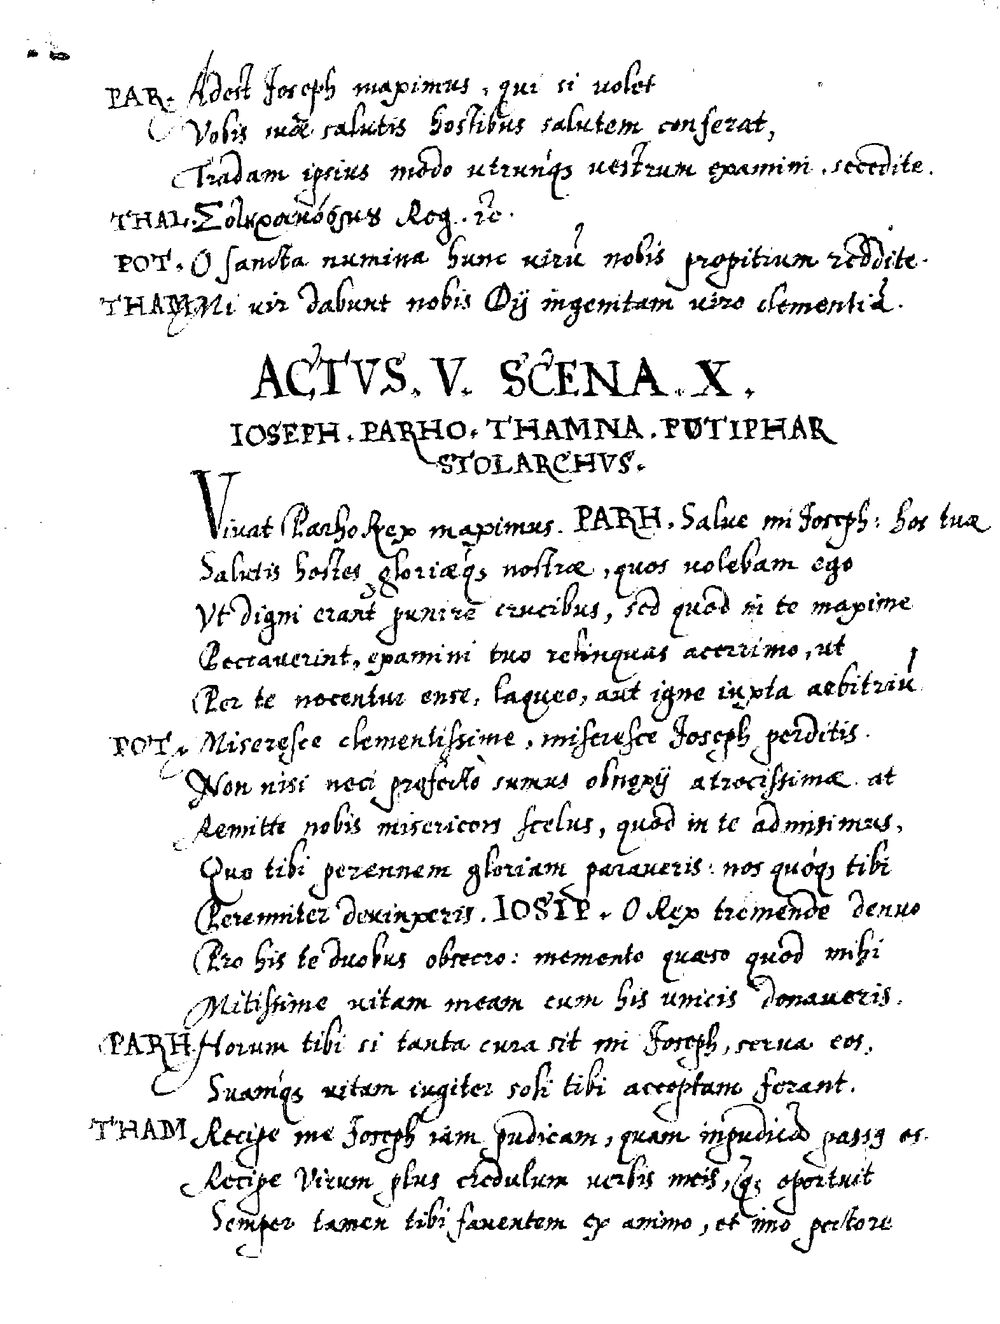 PAR. Adest Joseph maximus, qui si volet
Vobis suæ salutis hostibus salutem conferat,
Tradam ipsius modo utrunq́; uestrum examini. secedite.
THAL. Reg. &c.
POT. O sancta numina hunc uirũ nobis propitium reddite.
THAM Mi vir dabunt nobis Dij ingenitam viro clementiã.
ACTVS. V. SCENA. X.
IOSEPH. PARHO. THAMNA. POTIPHAR
STOLARCHVS.
Viuat Parho Rex maximus. PARH. Salue mi Joseph: hos tuæ
Salutis hostes gloriæq́; nostræ, quos uolebam ego
Vt digni erant punire crucibus, sed quod in te maxime
Peccauerint, examini tuo relinquas acerrimo, ut
Per te necentur ense, laqueo, aut igne iuxta arbitriũ
POT. Miseresce clementissime, miseresce Joseph perditis.
Non nisi neci profecto sumus obnoxij atrocissimæ. at
Remitte nobis misericors scelus, quod in te admisimus,
Quo tibi perennem gloriam paraueris: nos quóq; tibi
Peremniter deuinxeris. IOSEP. O Rex tremende denuo
Pro his te duobus obsecro: memento quæso quod mihi
Mitissime uitam meam cum his unicis donaueris.
PARH Horum tibi si tanta cura sit mi Joseph, serua eos,
Suamq́; uitam iugiter soli tibi acceptam ferant.
THAM Recipe me Joseph iam pudicam, quam inpudicã passq es.
Recipe Virum plus credulum uerbis meis, q̃; oportuit
Semper tamen tibi fauentem ex animo, et imo pectore